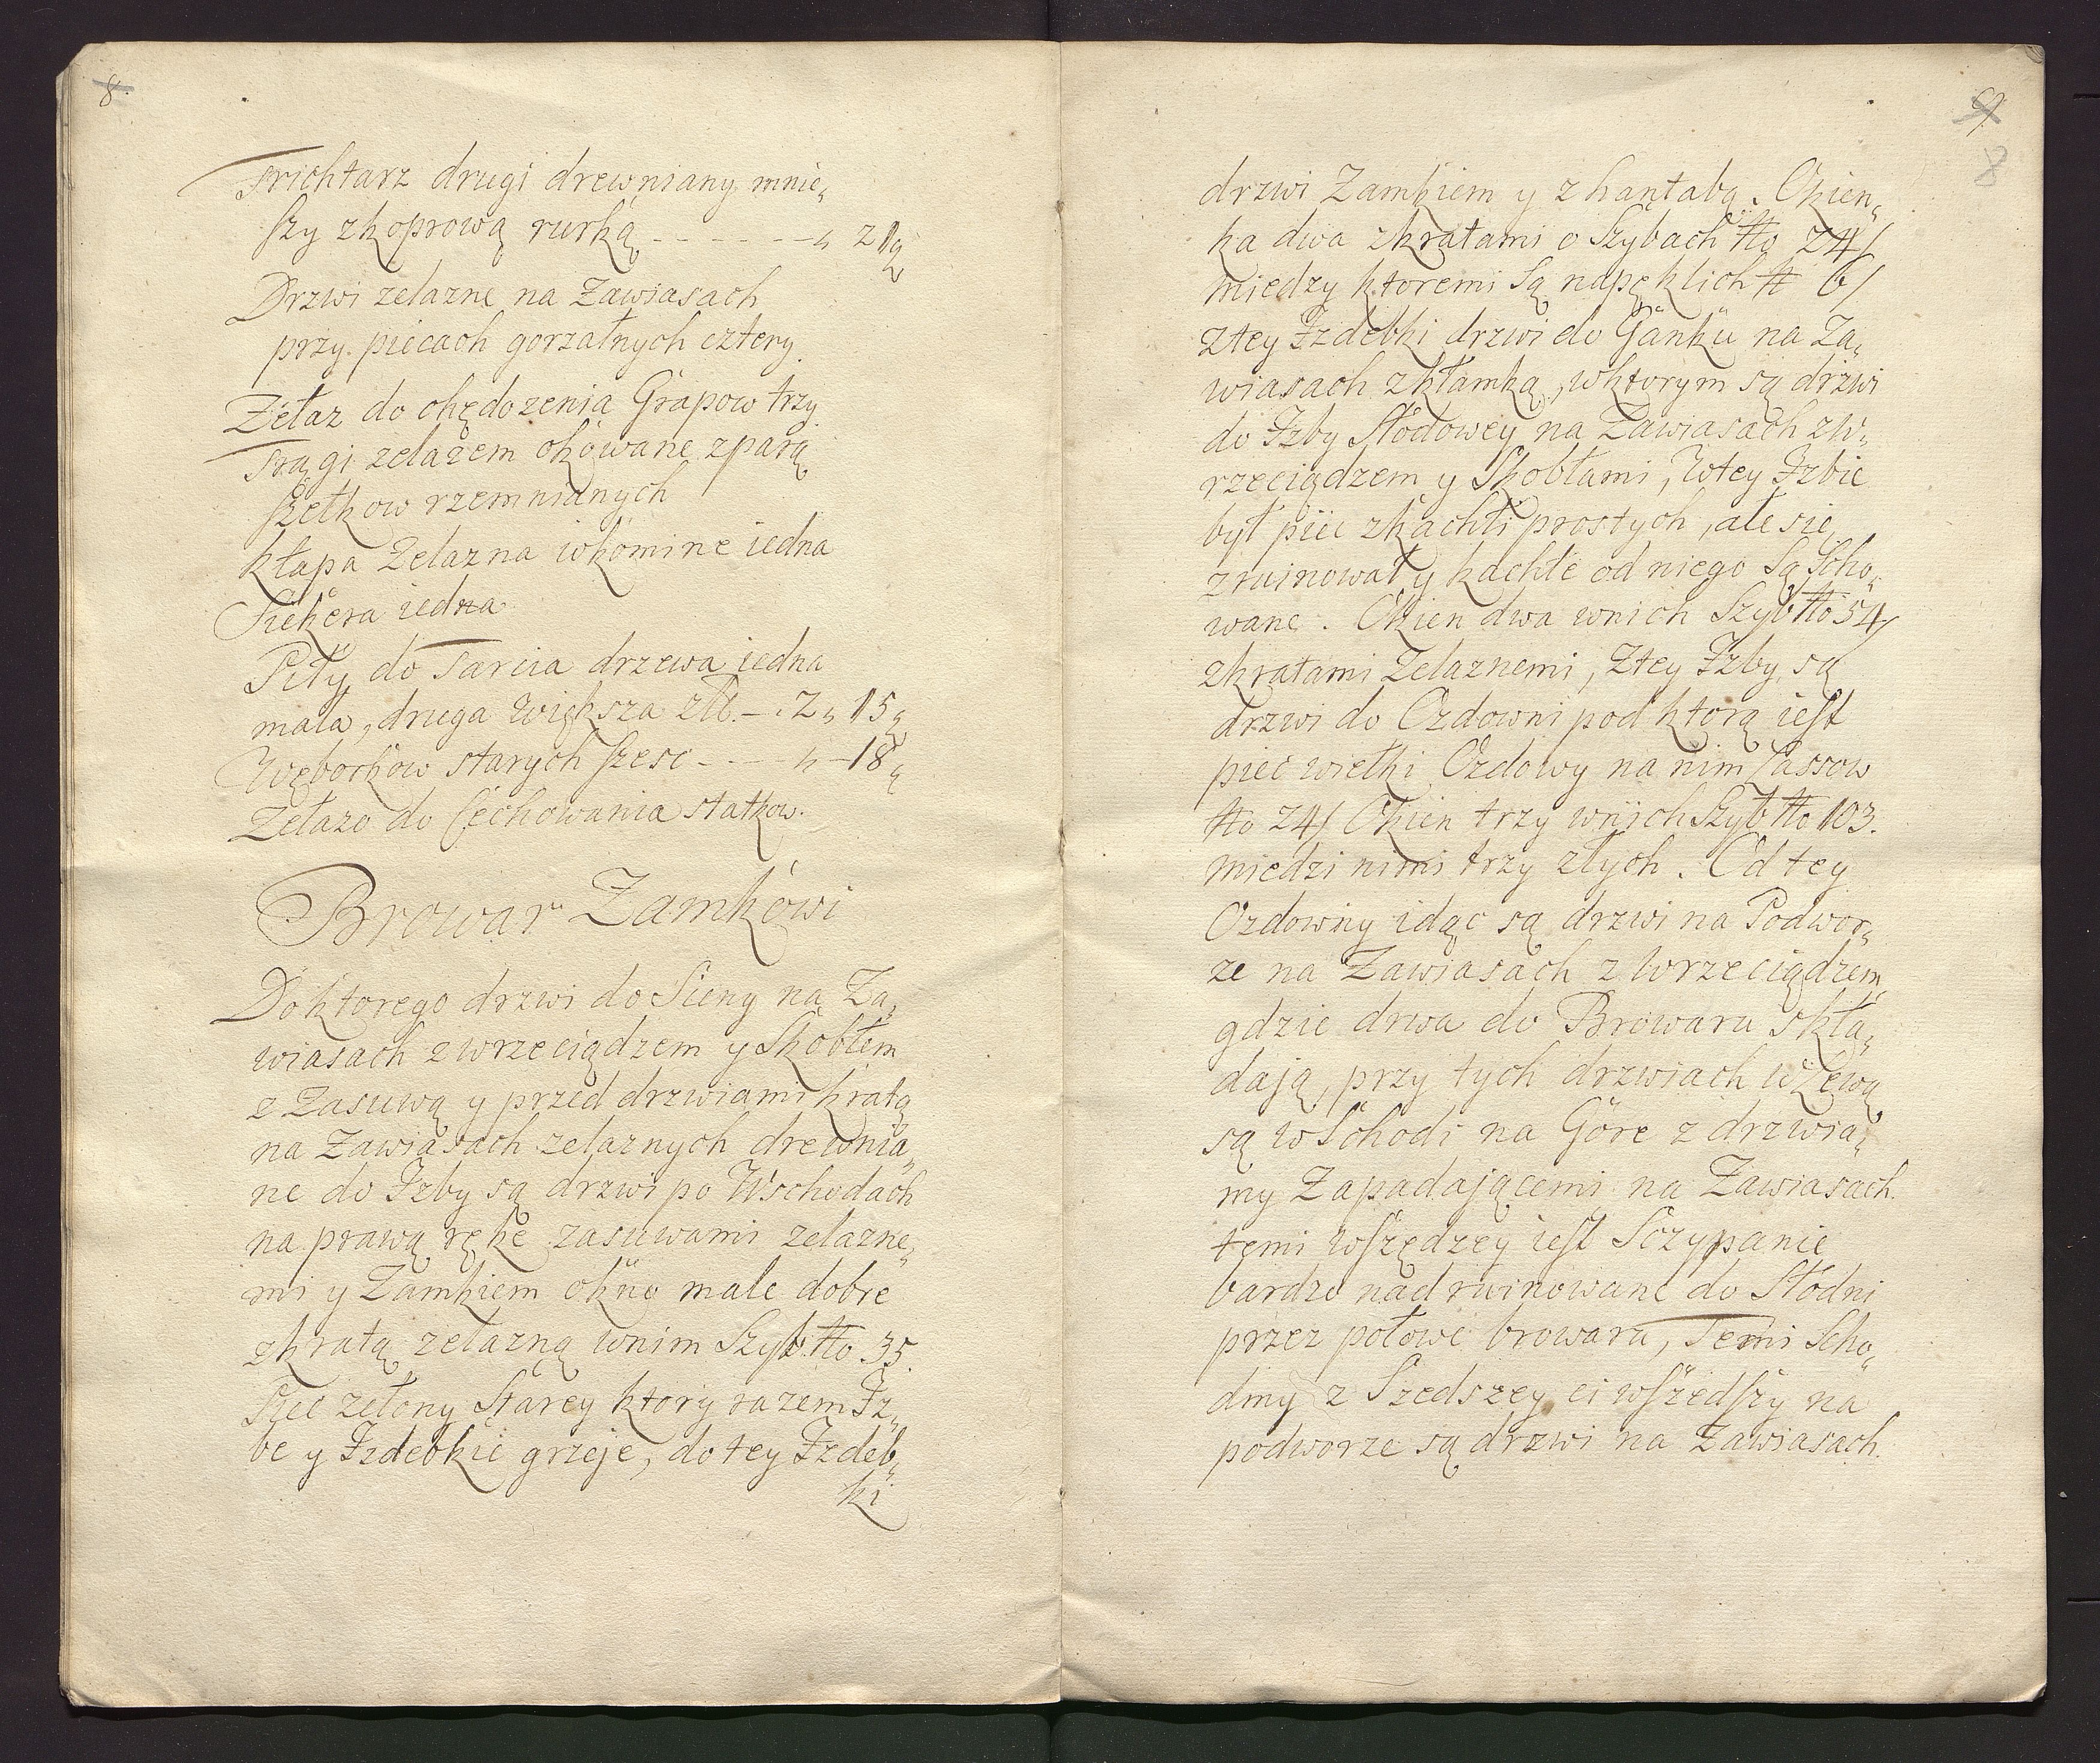 8.
Trichtarz drugi drewniany mnie„
ſzy zkoprową rurką - - - - - - „ 21
Drzwi zelazne na Zawiasach
przy piecach gorzałnych cztery
Zelaz do ohędozenia Grapow trzy
Trągi zelazem okowane z parą
ſzelkow rzemnianych
kłapa Zelazna wkominie iedna
Siekera iedna
Piły do Tarcia drzewa iedna
mała, druga Większa zlt. - . 2 „ 15
Węborkow starych ſzesc - - - „ - 18
Zelazo do Cechowania statkow.
Browar Zamkowi
Do ktorego drzwi do Sieny na Za„
wiasach z wrzeciądzem y Skoblem
z Zasuwą y przed drzwiami kratą
na Zawiasach zelaznych drewnia„
ne do Jzby są drzwi po Wschodach
na prawą ręke zasuwami zelazne„
mi y Zamkiem okno male dobre
zkratą zelazną wnim Szyb tto 35.
Piec zelony Starey ktory razem Jz„
be y Jzdebkie grzeje, do tey Jzdeb„
ki
9
8
drzwi Zamkiem y z hantabą. Okien„
ka dwa zkratami o Szybach tto 24/
miedzy ktoremi Są napęklich tt 6/
Ztey Jzdebki drzwi do Ganku na Za„
wiasach zkłamką, wktorym są drzwi
do Jzby Słodowey na Zawiasach zw„
rzeciądzem y Skobłami, Wtey Jzbie
był piec zkachli prostych, ale sie
zruinował y kachle od niego Są Scho„
wane. Okien dwa wnich Szyb tto 54/
zkratami Zelaznemi, Ztey Jzby są
drzwi do Ozdowni pod ktorą ieſt
piec wielki Ozdowy na nim Lassow
tto 24/ Okien trzy wnich Szyb tto 103.
miedzi nimi trzy złych. Od tey
Ozdowny idąc są drzwi na Podwor„
ze na Zawiasach z Wrzeciądzem,
gdzie drwa do Browaru skła„
dają, przy tych drzwiach W Lewą
są wSchodi na Góre z drzwia„
my Zapadającemi na Zawiasach.
temi Wſzędzey ieſt Sczypanie
bardzo nadruinowane do Słodni
przez połowe browaru, Temi Scho„
dmy z Szedszey ei wſzedſzy na
podworze są drzwi na Zawiasach.